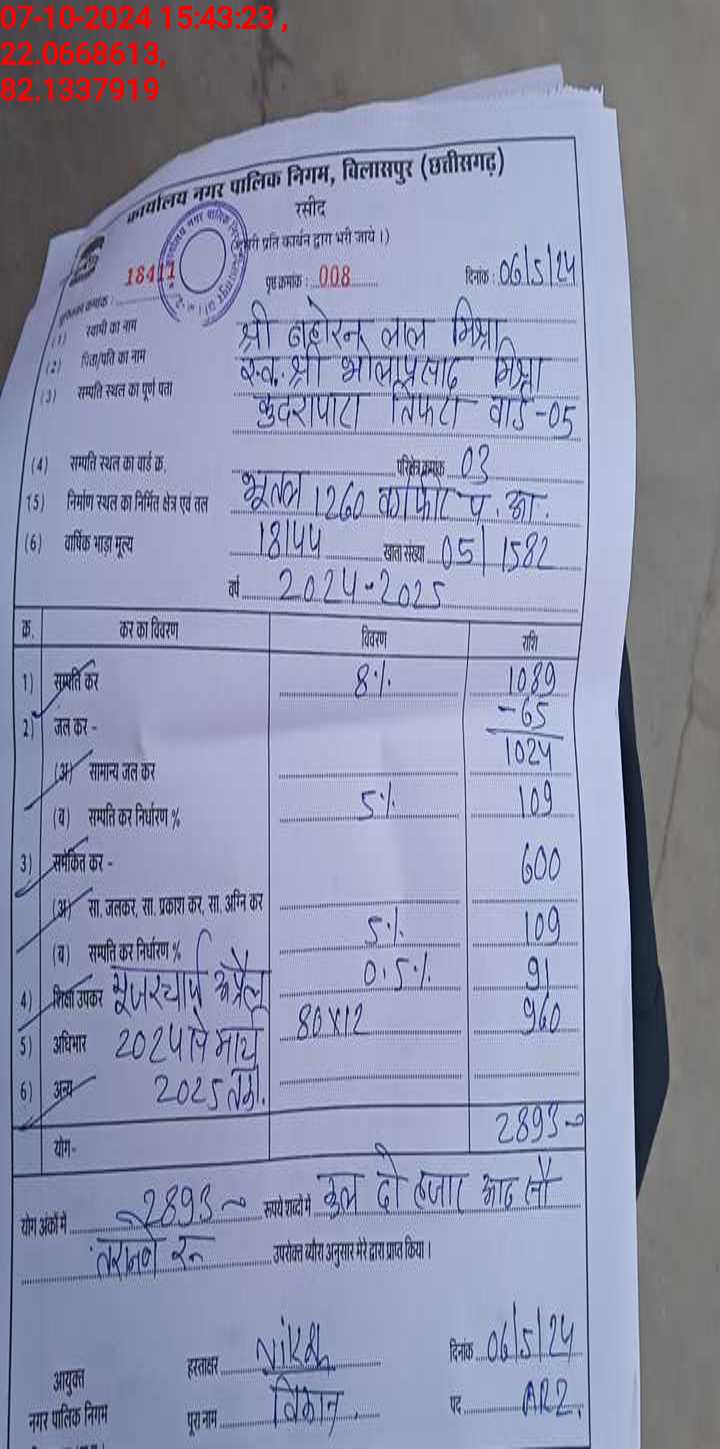 07-10-2024 15:43:23 ,
22.0668613,
82.1337919
कार्यालय नगर पालिक निगम, बिलासपुर (छत्तीसगढ़)
रसीद
प्रति कार्बन द्वारा भरी जाये।)
18411 पृष्ठ क्रमांक : 008 दिनांक : 06/5/24
(1) स्वामी का नाम श्री लाल मिश्रा
(2) पिता/पति का नाम स्व. श्री भोलाप्रसाद मिश्रा
(3) सम्पति स्थल का पूर्ण पता कुदरापारा तिफरा वार्ड -05
(4) सम्पति स्थल का वार्ड क्र. परिक्षेत्र क्रमांक 03
(5) निर्माण स्थल का निर्मित क्षेत्र एवं तल भूतल 1260 प. आ.
(6) वार्षिक भाड़ा मूल्य 18144 खाता संख्या 05/1582
वर्ष 2024-2025
क्र. कर का विवरण विवरण राशि
1) सम्पति कर 8% 1089
-65
2) जल कर - 1024
(अ) सामान्य जल कर
(ब) सम्पति कर निर्धारण % 5% 109
3) समेकित कर - 600
(अ) सा. जलकर, सा. प्रकाश कर, सा. अग्नि कर
(ब) सम्पति कर निर्धारण % 5% 109
4) शिक्षा उपकर यूजरचार्ज अप्रैल 0.5% 91
5) अधिभार 2024 से मार्च 80x12 960
6) अन्य 2025 तक.
योग- 2893
योग अंकों में 2893 रूपये शब्दों में कुल दो हजार आठ सौ
तेरानबे रू उपरोक्त ब्यौरा अनुसार मेरे द्वारा प्राप्त किया।
आयुक्त हस्ताक्षर दिनांक 06/5/24
नगर पालिक निगम पूरा नाम पद ARI.